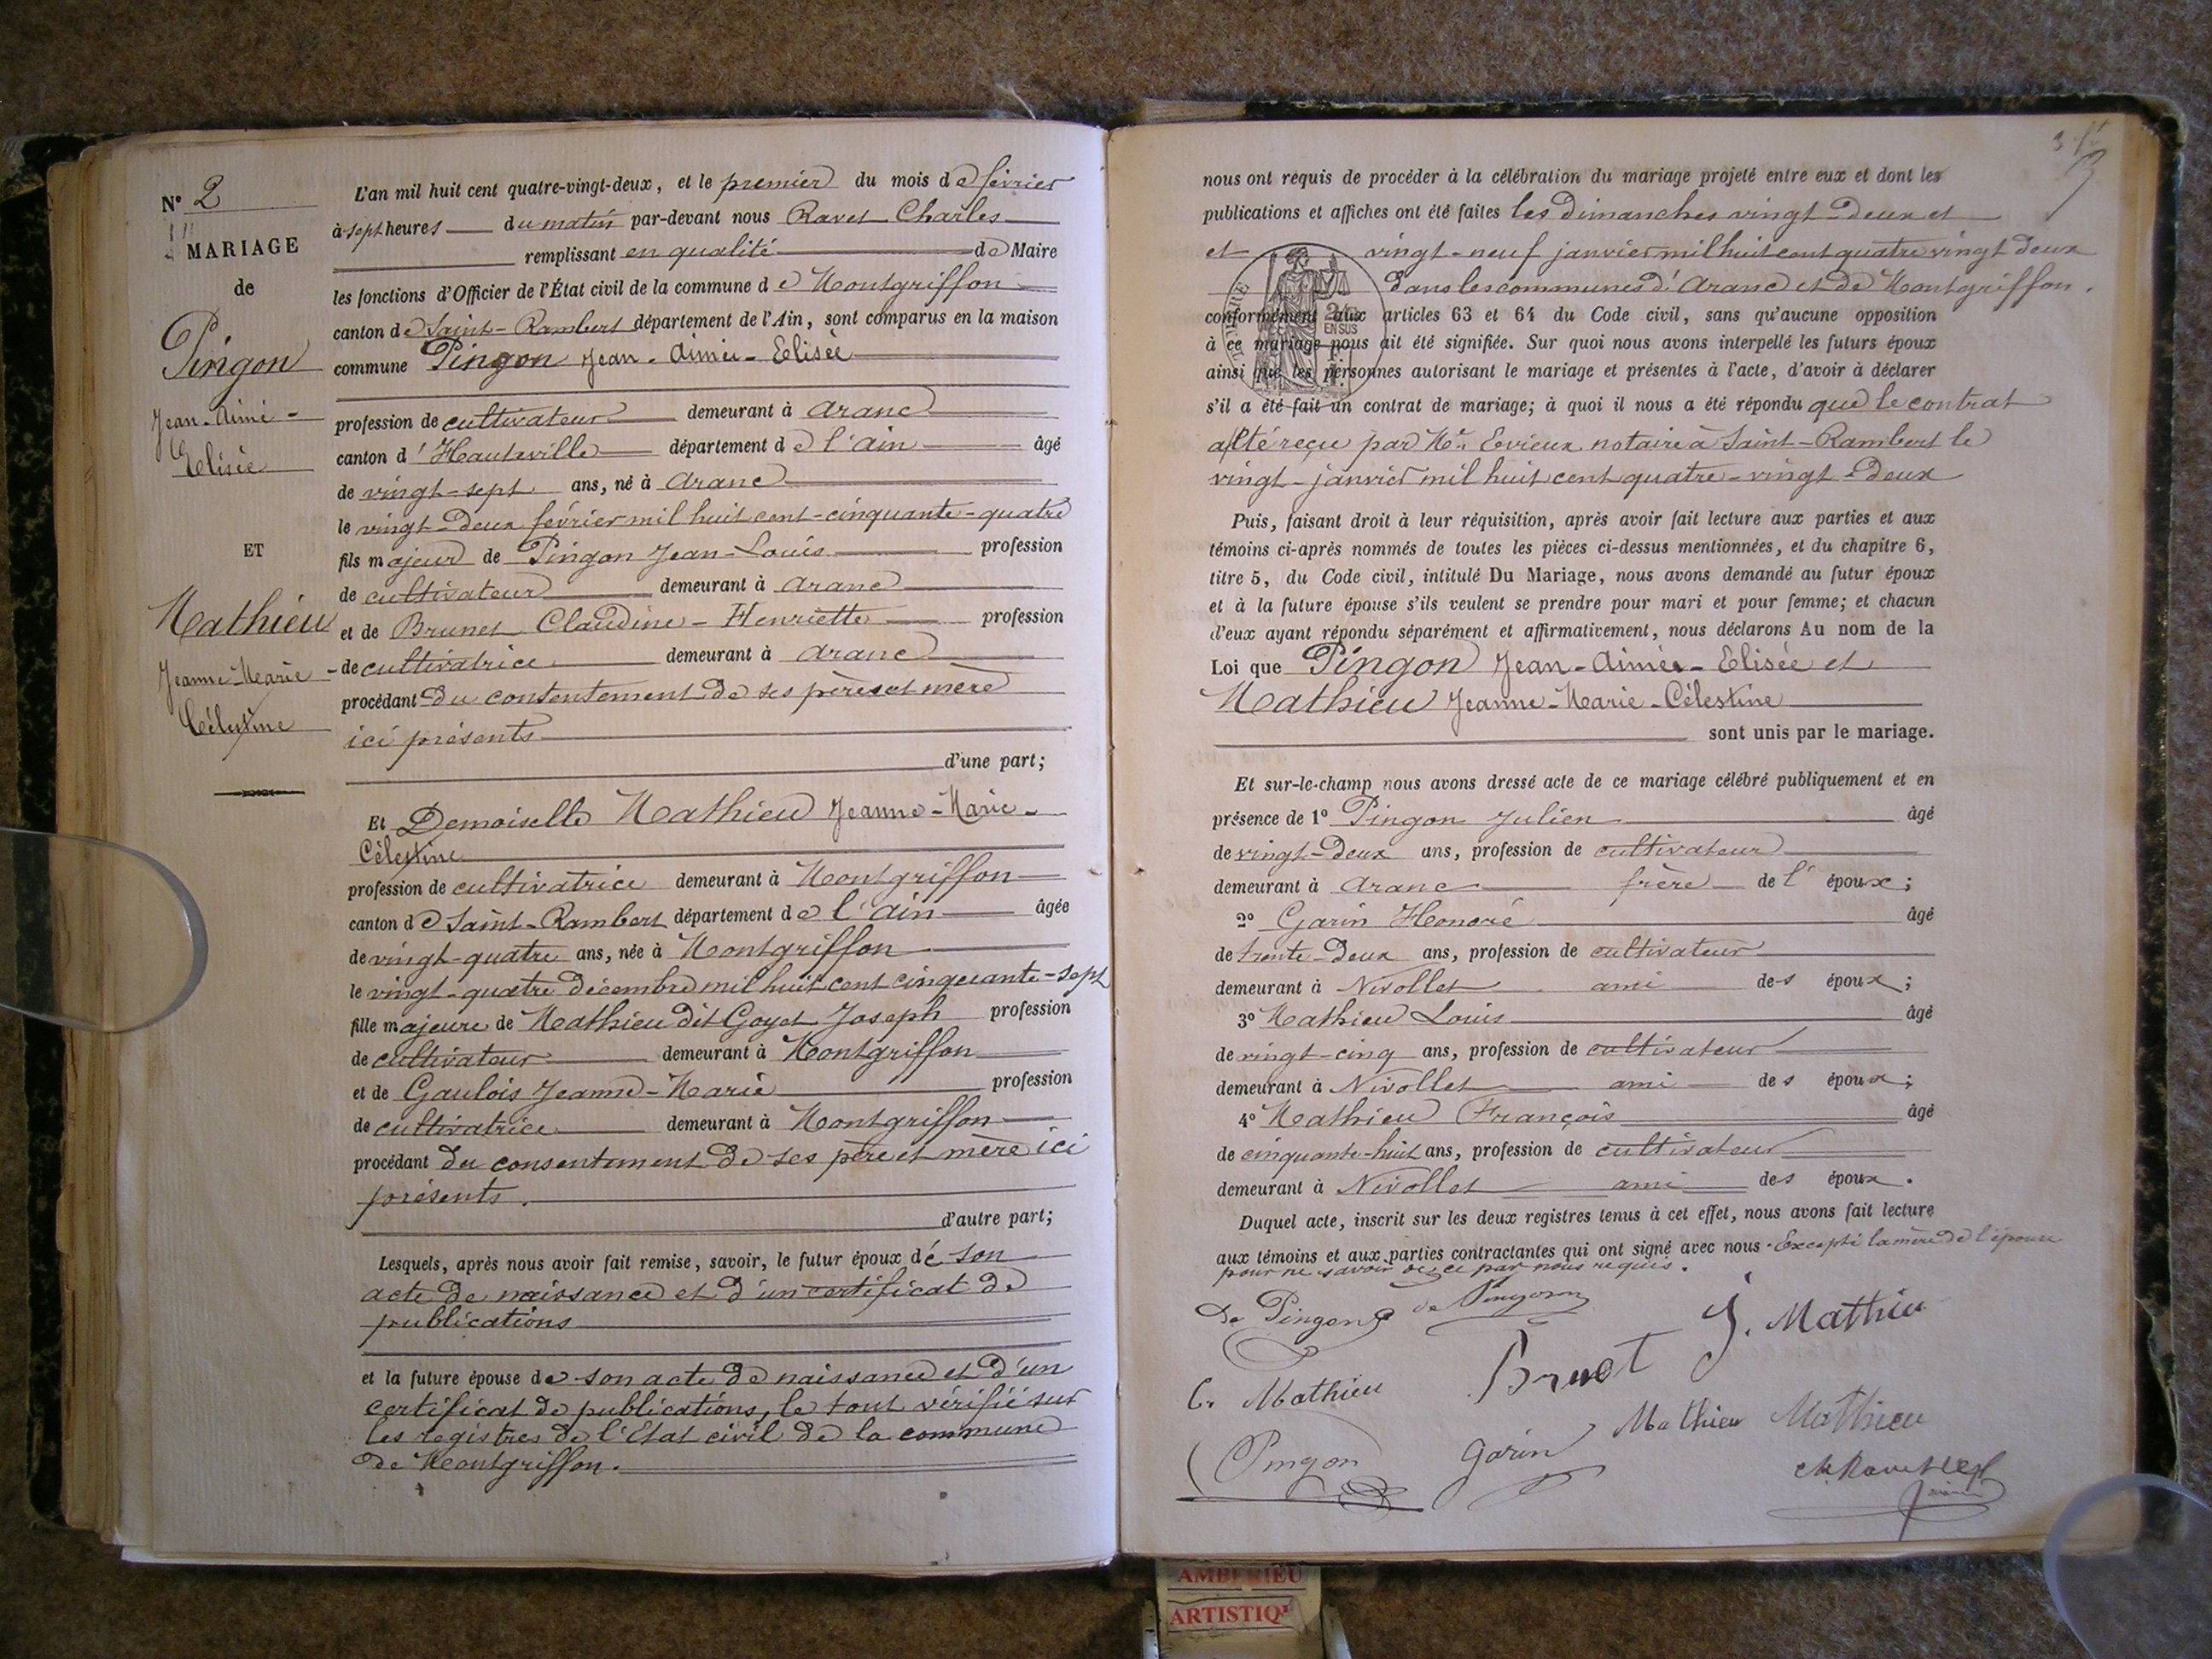 N° 2
MARIAGE
de
Pingon
Jean-Aimé-
Elisée
ET
Mathieu
Jeanne-Marie-
Célestine
L'an mil huit cent quatre-vingt-deux, et le premier du mois de février
à sept heures du matin par-devant nous Ravet Charles
remplissant en qualité de Maire
les fonctions d'Officier de l'État civil de la commune de Montgriffon
canton de Saint-Rambert département de l'Ain, sont comparus en la maison
commune Pingon Jean-Aimée-Elisée
profession de cultivateur demeurant à Aranc
canton d'Hauteville département de l'Ain âgé
de vingt-sept ans, né à Aranc
le vingt-deux février mil huit cent-cinquante-quatre
fils majeur de Pingon Jean-Louis profession
de cultivateur demeurant à Aranc
et de Brunet Claudine-Henriette profession
de cultivatrice demeurant à Aranc
procédant du consentement de ses père et mère
ici présents
d'une part;
Et Demoiselle Mathieu Jeanne-Marie-
Célestine
profession de cultivatrice demeurant à Montgriffon
canton de Saint-Rambert département de l'Ain âgée
de vingt-quatre ans, née à Montgriffon
le vingt-quatre décembre mil huit cent cinquante-sept
fille majeure de Mathieu dit Goyet Joseph profession
de cultivateur demeurant à Montgriffon
et de Gaulois Jeanne-Marie profession
de cultivatrice demeurant à Montgriffon
procédant du consentement de ses père et mère ici
présents.
d'autre part;
Lesquels, après nous avoir fait remise, savoir, le futur époux de son
acte de naissance et d'un certificat de
publications
et la future épouse de son acte de naissance et d'un
certificat de publications, le tout vérifié sur
les registres de l'Etat civil de la commune
de Montgriffon.
nous ont requis de procéder à la célébration du mariage projeté entre eux et dont les
publications et affiches ont été faites les dimanches vingt-deux et
et vingt-neuf janvier mil huit cent quatre vingt deux
dans les communes d'Aranc et de Montgriffon.
conformément aux articles 63 et 64 du Code civil, sans qu'aucune opposition
à ce mariage nous ait été signifiée. Sur quoi nous avons interpellé les futurs époux
ainsi que les personnes autorisant le mariage et présentes à l'acte, d'avoir à déclarer
s'il a été fait un contrat de mariage; à quoi il nous a été répondu que le contrat
a été reçu par Me. Evrieux notaire à Saint-Rambert le
vingt-janvier mil huit cent quatre-vingt-deux
Puis, faisant droit à leur réquisition, après avoir fait lecture aux parties et aux
témoins ci-après nommés de toutes les pièces ci-dessus mentionnées, et du chapitre 6,
titre 5, du Code civil, intitulé Du Mariage, nous avons demandé au futur époux
et à la future épouse s'ils veulent se prendre pour mari et pour femme; et chacun
d'eux ayant répondu séparément et affirmativement, nous déclarons Au nom de la
Loi que Pingon Jean-Aimée-Elisée et
Mathieu Jeanne-Marie-Célestine
sont unis par le mariage.
Et sur-le-champ nous avons dressé acte de ce mariage célébré publiquement et en
présence de 1° Pingon Julien âgé
de vingt-deux ans, profession de cultivateur
demeurant à Aranc frère de l'époux;
2° Garin Honoré âgé
de trente-deux ans, profession de cultivateur
demeurant à Nivollet ami des époux;
3° Mathieu Louis âgé
de vingt-cinq ans, profession de cultivateur
demeurant à Nivollet ami des époux;
4° Mathieu François âgé
de cinquante-huit ans, profession de cultivateur
demeurant à Nivollet ami des époux.
Duquel acte, inscrit sur les deux registres tenus à cet effet, nous avons fait lecture
aux témoins et aux parties contractantes qui ont signé avec nous. Excepté la mère de l'épouse
pour ne savoir de ce par nous requis.
De Pingon
J. Mathieu
C. Mathieu
Brunet
Pingon
Garin
Mathieu Mathieu
2
EN SUS
AMBERIEU
ARTISTIQ